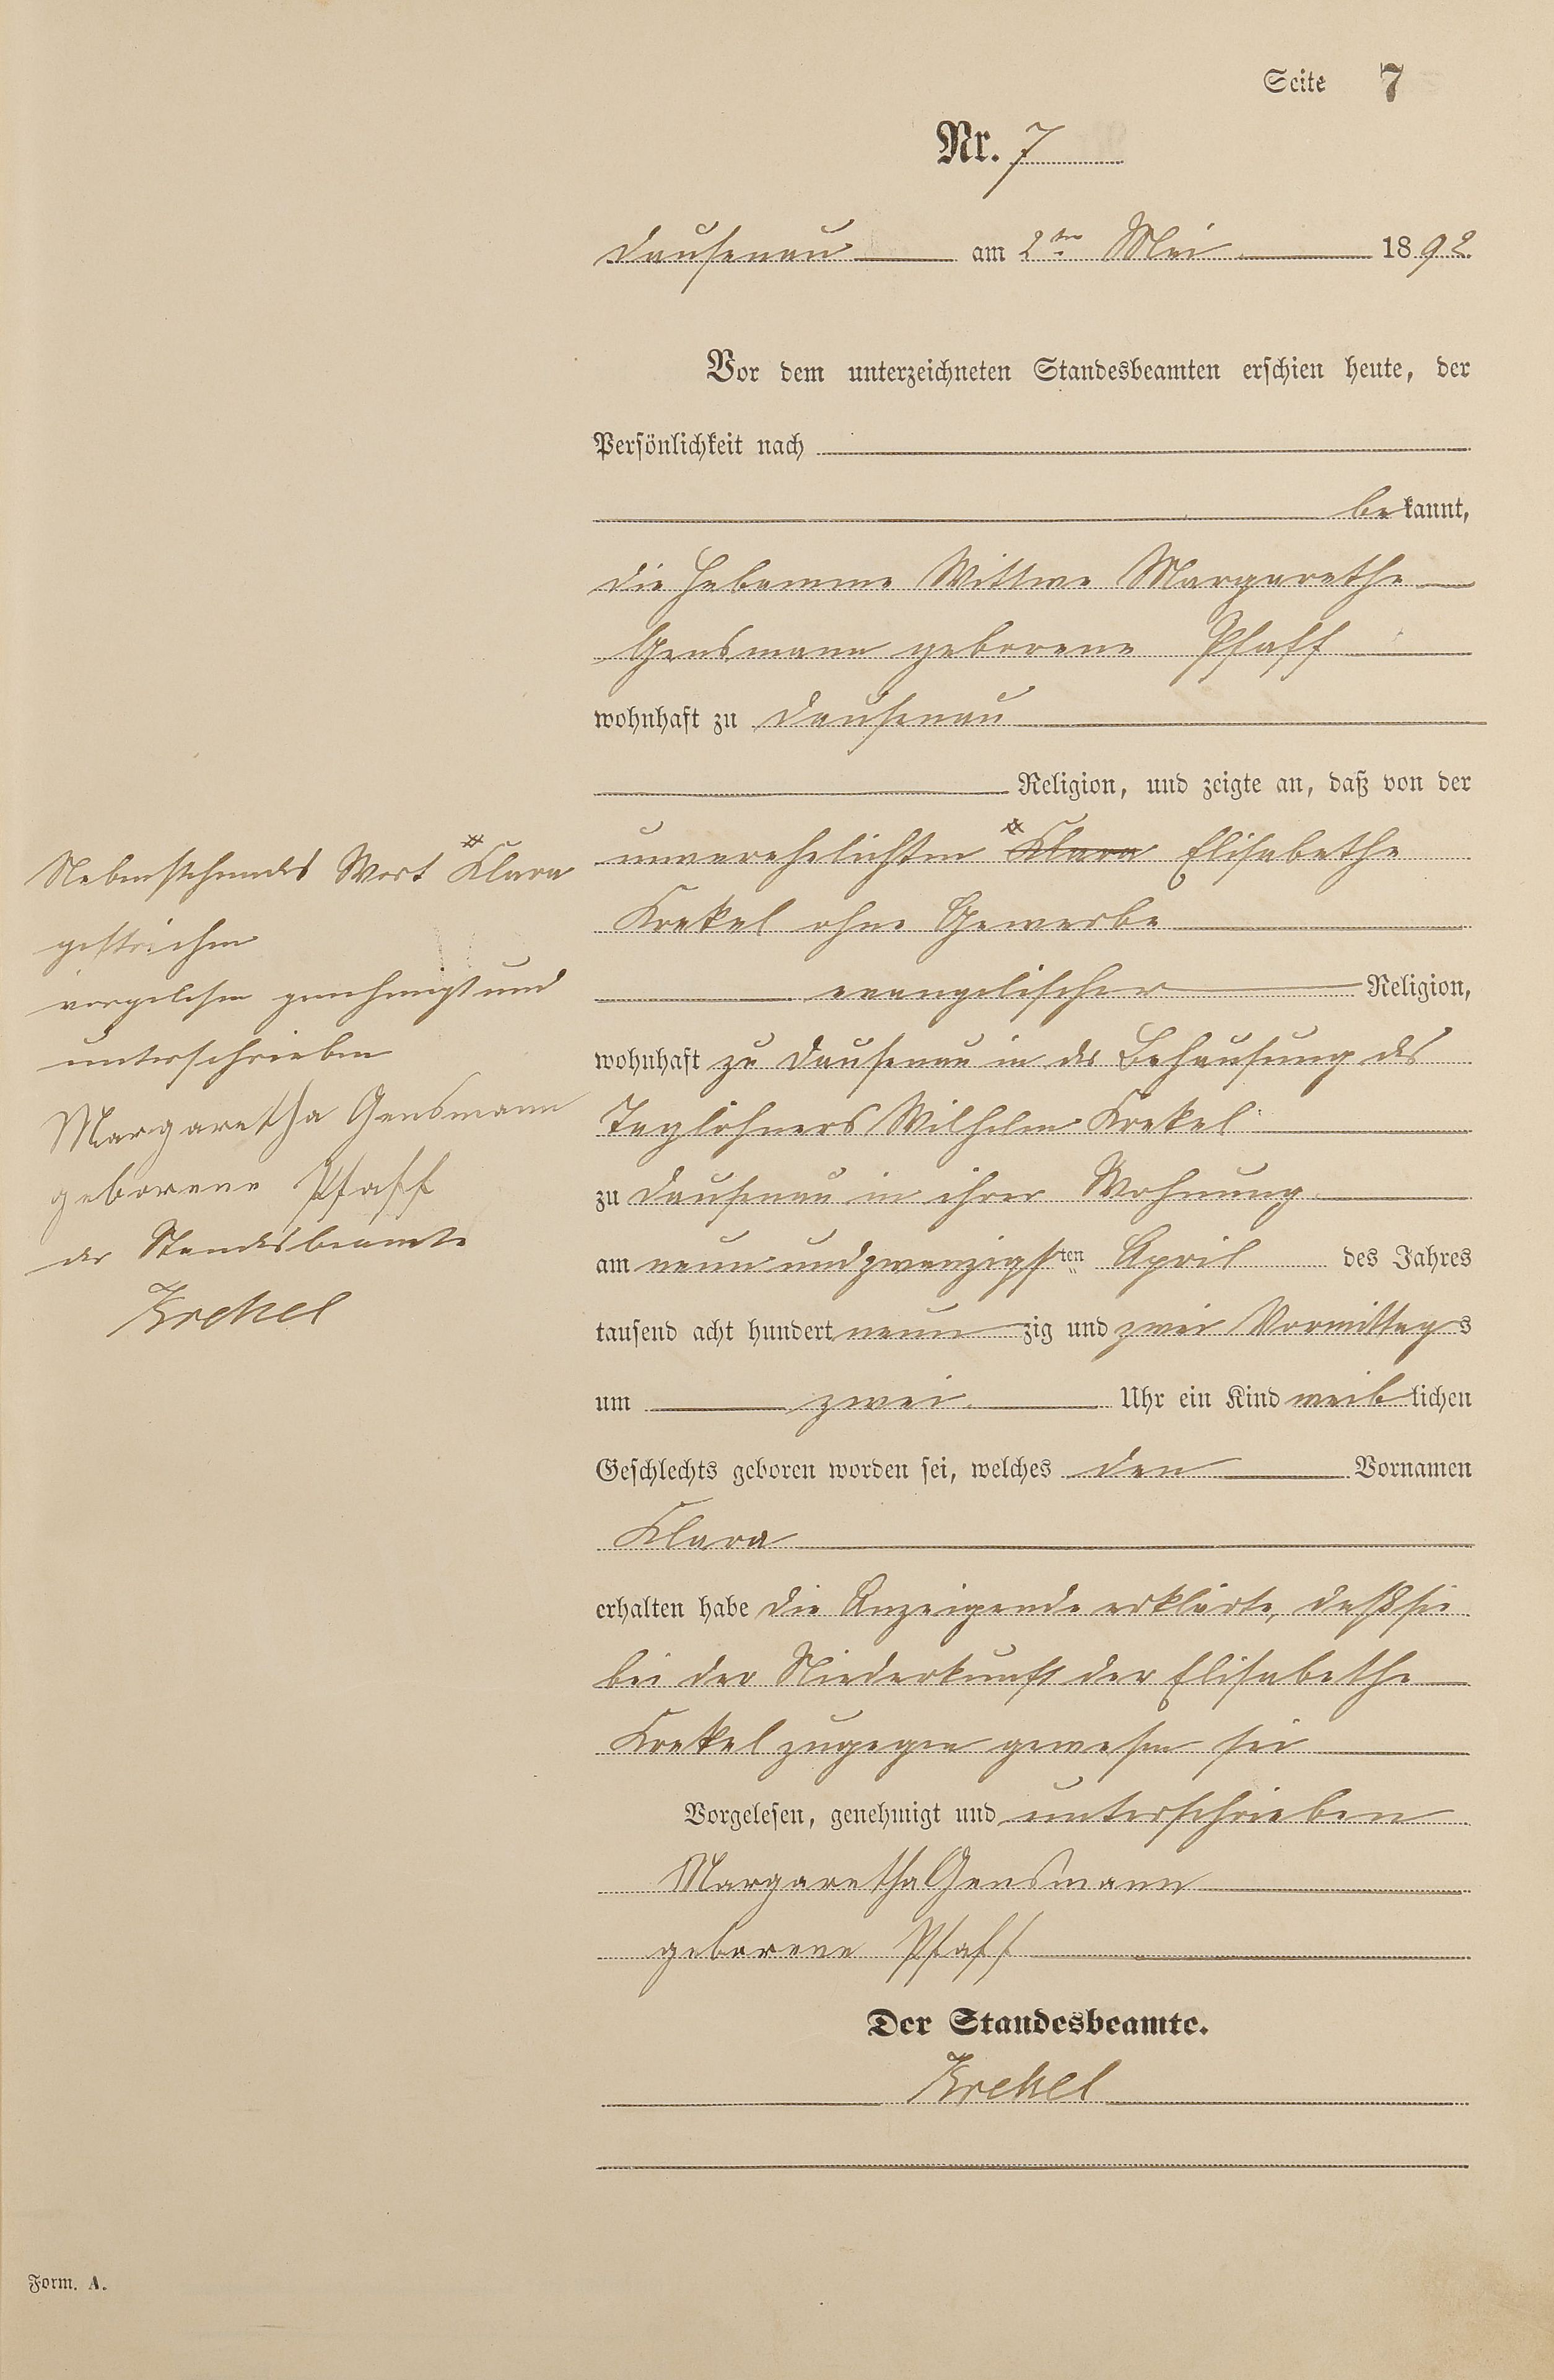 Seite 7
Nr. 7
Dausenau am 2ten Mai 1892
Vor dem unterzeichneten Standesbeamten erschien heute, der
Persönlichkeit nach
bekannt,
die Hebamme Wittwe Margarethe
Gensmann geborene Pfaff
wohnhaft zu Dausenau
Religion, und zeigte an, daß von der
unverehelichten Klara Elisabethe
Krekel ohne Gewerbe
evangelischer Religion,
wohnhaft zu Dausenau in der Behausung des
Taglöhners Wilhelm Krekel
zu Dausenau in ihrer Wohnung
am neun und zwanzigsten April des Jahres
tausend acht hundert neunzig und zwei Vormittags
um zwei Uhr ein Kind weiblichen
Geschlechts geboren worden sei, welches den Vornamen
Klara
erhalten habe die Anzeigende erklärte, daß sie
bei der Niederkunft der Elisabethe
Krekel zugegen gewesen sei
Vorgelesen, genehmigt und unterschrieben
Margaretha Gensmann
geborene Pfaff
Der Standesbeamte.
Krekel
Nebenstehendes Wort Klara
gestrichen
vorgelesen genehmigt und
unterschrieben
Margaretha Gensmann
geborene Pfaff
der Standesbeamte
Krekel
Form. A.